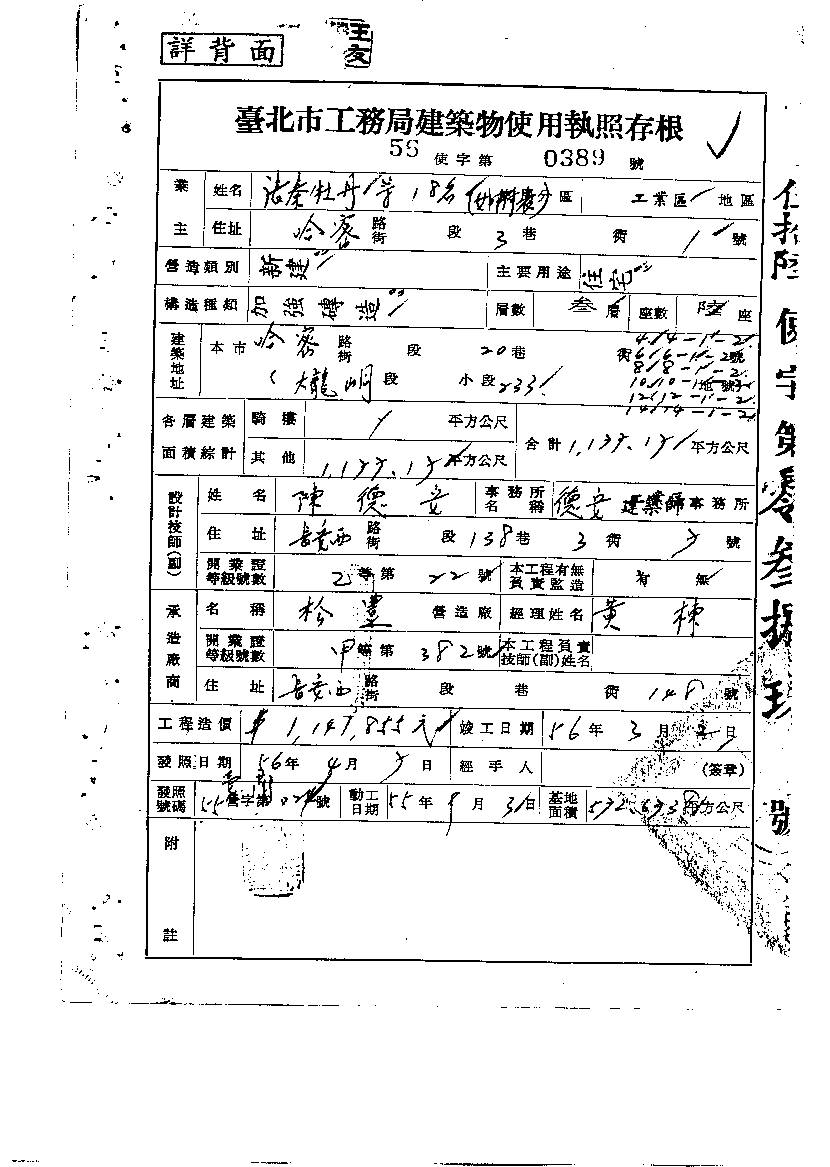 詳背面
王友
臺北市工務局建築物使用執照存根
56 使字第 0389 號
業主 姓名 牡丹 等18名 區 工業區 地區
住址 哈密 路街 段 3巷 衖 1 號
營造類別 新建 主要用途 住宅
構造種類 加強磚造 層數 叁層 座數 陸座
建築地址 本市 哈密 路街 段 20巷 衖 號
4/4-1-2
6/6-1-2
8/8-1-2
10/10-1
12/12-1-2
14/14-1-2
大龍峒段 小段 233 地號
各層建築面積綜計 騎樓 平方公尺 合計 平方公尺
其他 平方公尺
設計技師(副) 姓名 陳德安 事務所名稱 德安建築師事務所
住址 長安西 路街 段 138巷 3衖 5 號
開業證等級號數 乙等第 22 號 本工程有無負責監造 有 無
承造廠商 名稱 松豐 營造廠 經理姓名 黃棟
開業證等級號數 甲等第 382 號 本工程負責技師(副)姓名
住址 長安西 路街 段 巷 衖 148 號
工程造價 $1,147,855元 竣工日期 56年3月 日
發照日期 56年4月5日 經手人 (簽章)
發照號碼 55 營字第 號 動工日期 55年9月3 日 基地面積 平方公尺
附註
伍拾陸使字第零叁捌玖號